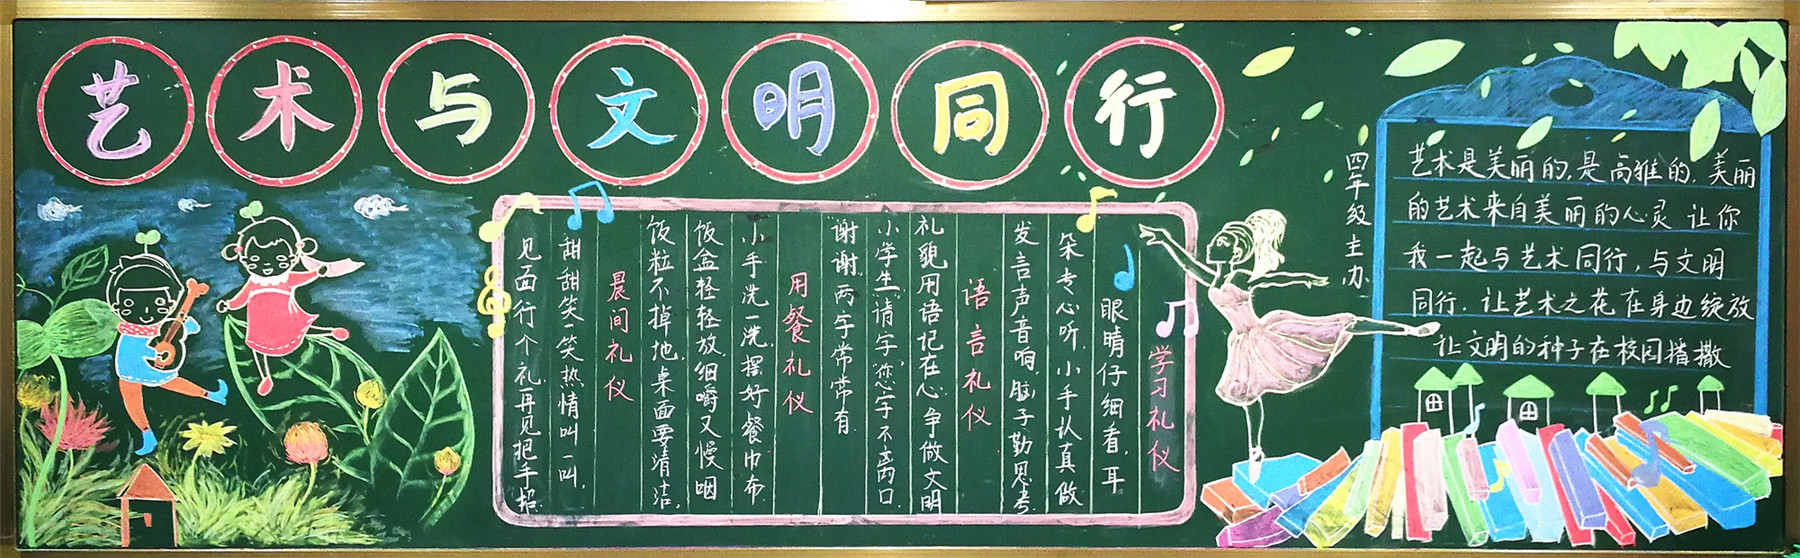 艺术与文明同行
学习礼仪
眼睛仔细看,耳
朵专心听,小手认真做
发言声音响,脑子勤思考
语言礼仪
礼貌用语记在心,争做文明
小学生"请"字"您"字不离口
"谢谢"两字常常有
用餐礼仪
小手洗一洗,摆好餐巾布
饭盒轻轻放,细嚼又慢咽
饭粒不掉地,桌面要清洁。
晨间礼仪
甜甜笑一笑,热情叫一叫,
见面行个礼,再见把手招.
四年级主办
艺术是美丽的,是高雅的,美丽
的艺术来自美丽的心灵 让你
我一起与艺术同行,与文明
同行.让艺术之花在身边绽放
让文明的种子在校园播撒